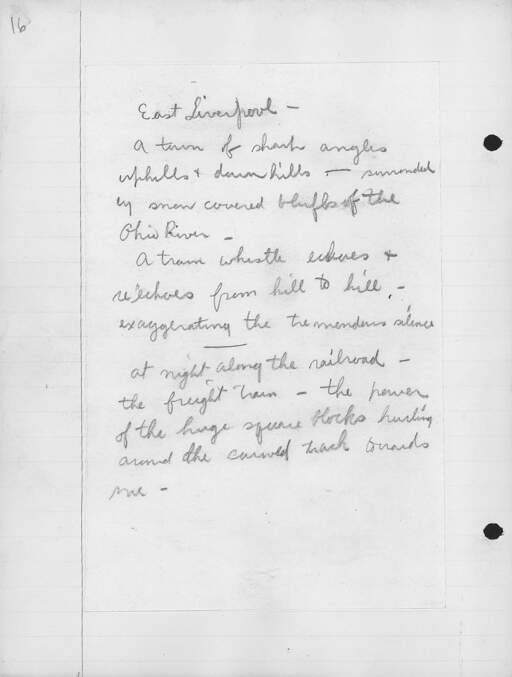 16
East Liverpool -
A town of sharp angles
uphills & downhills - surrounded
by snow covered bluffs of the
Ohio River -
A train whistle echoes &
re'echoes from hill to hill, -
exaggerating the tremendous silence
at night along the railroad -
the freight train - the power
of the huge square blocks hurling
around the curved track towards
me -